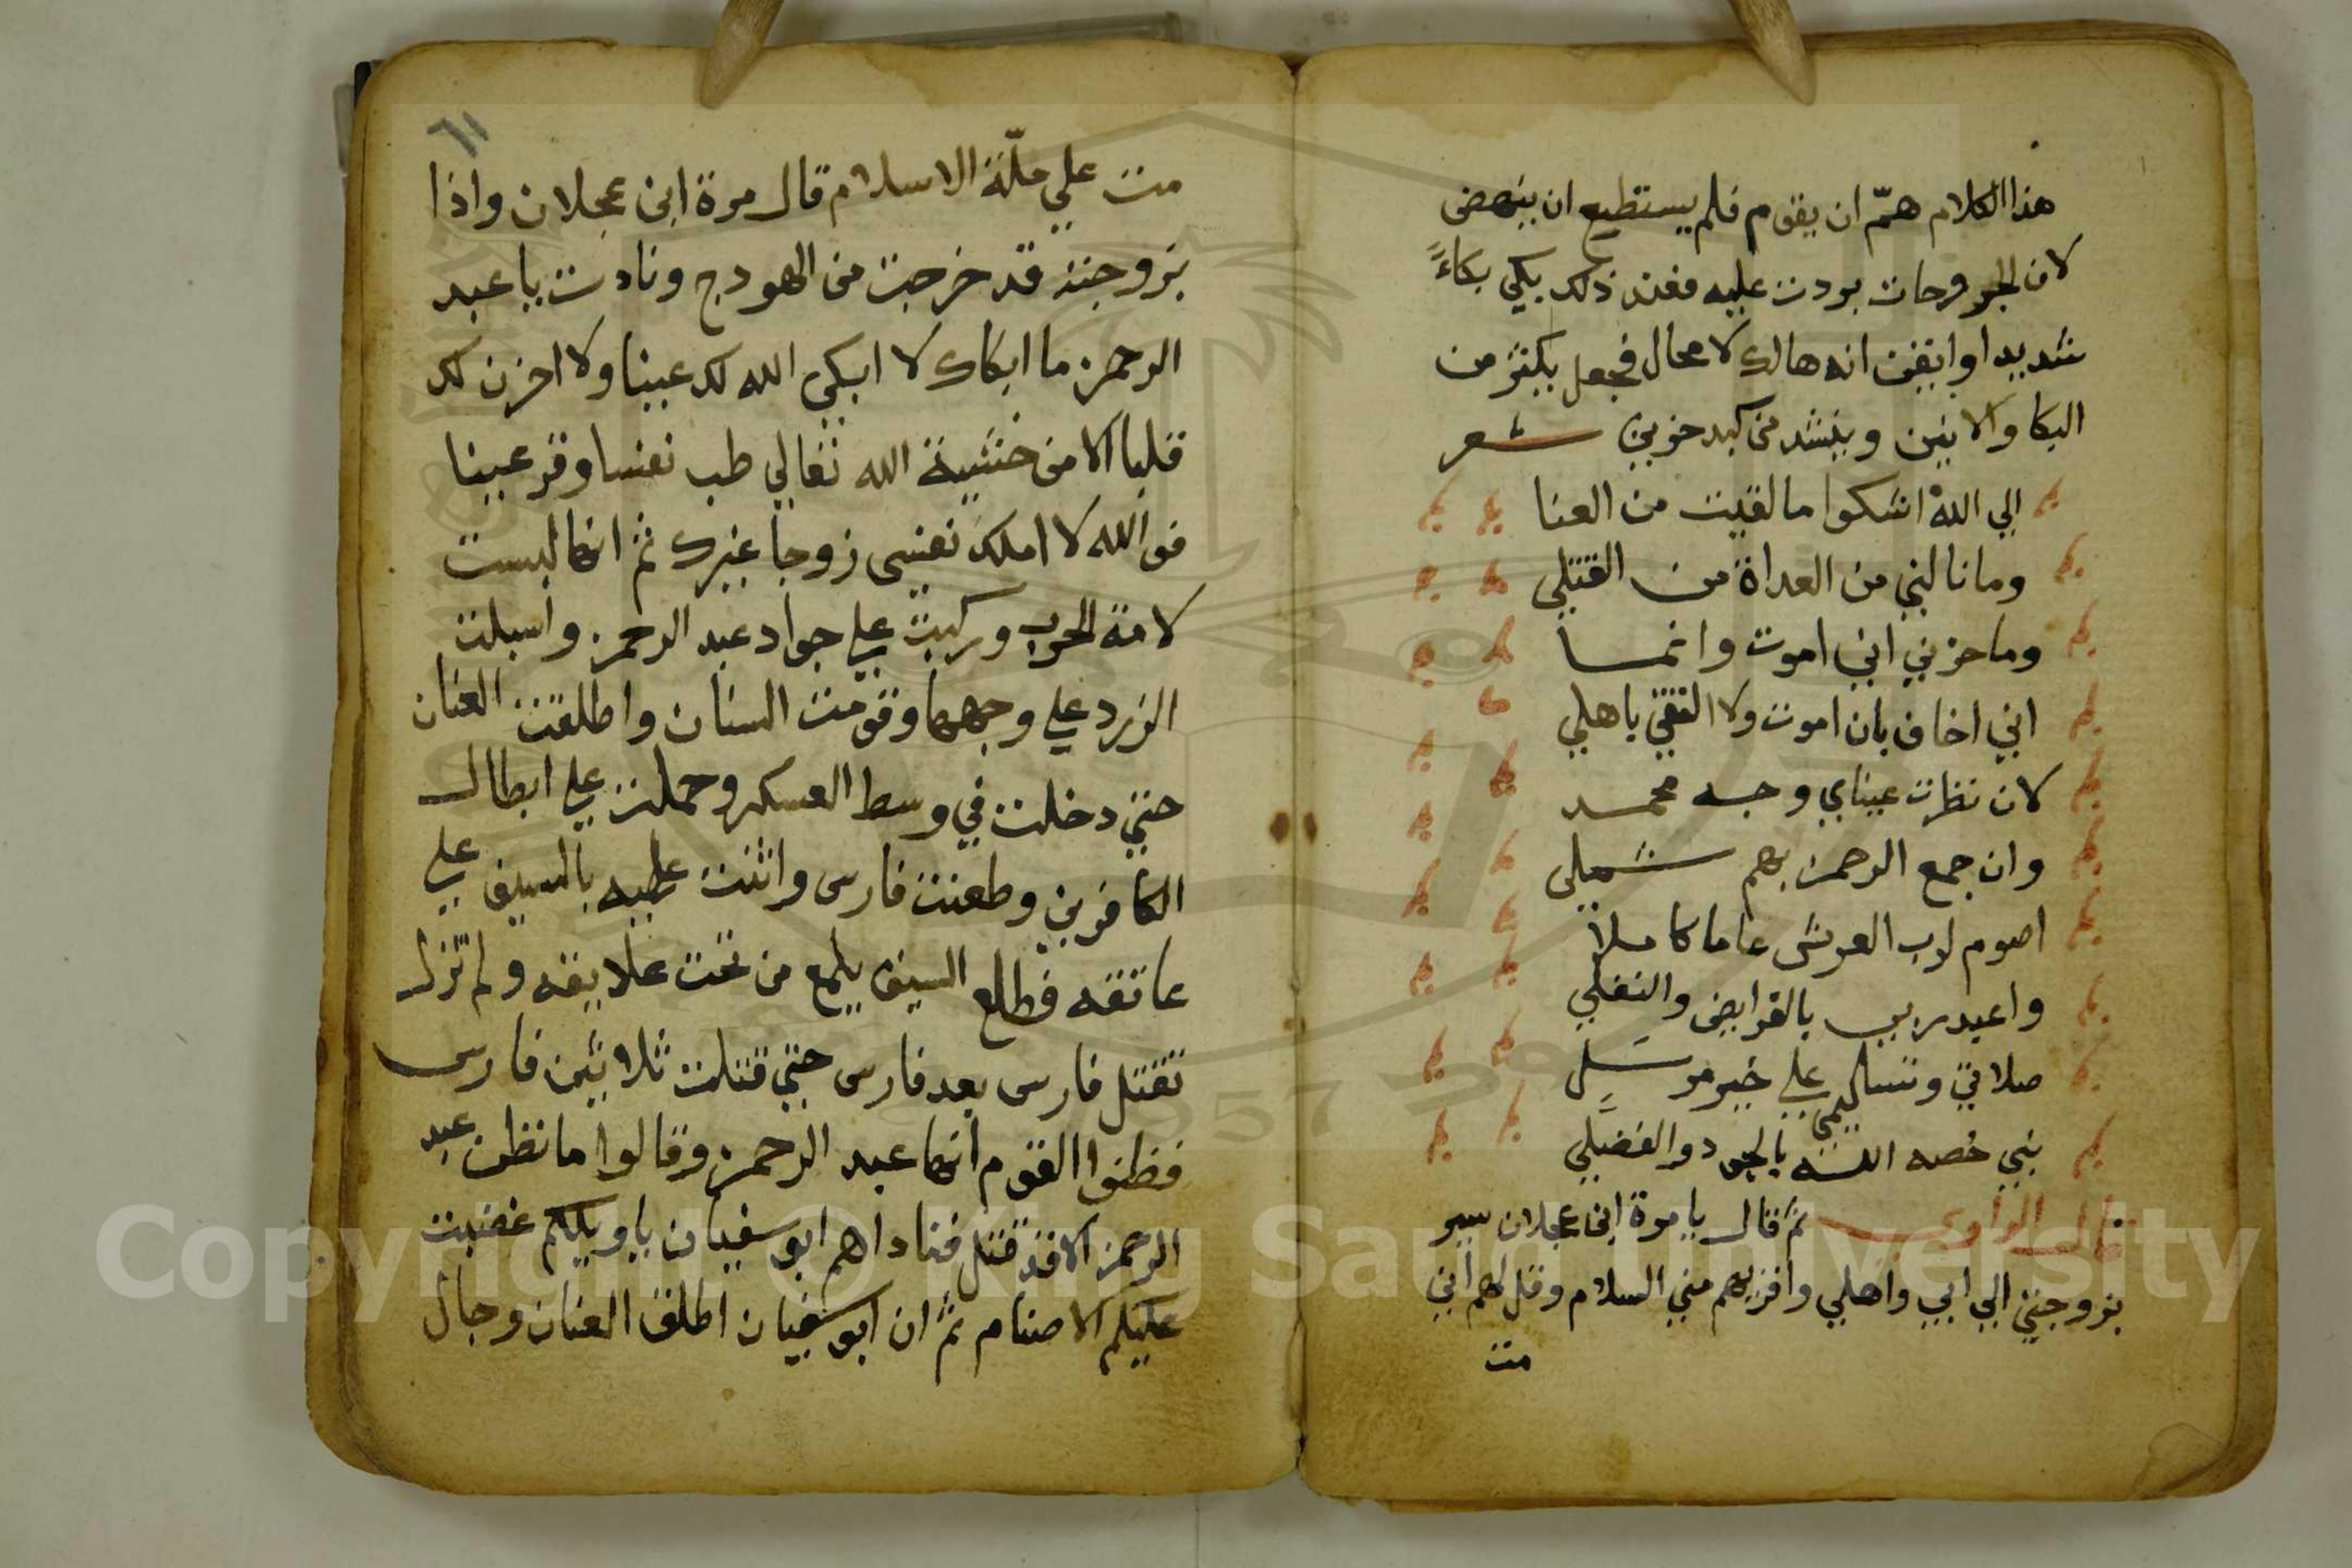 هذا الكلام همّ ان يقوم فلم يستطيع ان ينهض
لان الجروحات بردت عليه فعند ذلك بكي بكاءً
شديدا وايقن انه هالك لا محال فجعل يكثر من
البكا والانين وينشد من كبد حزين شعر
الي الله اشكوا ما لقيت من العنا
وما نالني من العداة من القتلي
وما حزني اني اموت وانما
اني اخاف بان اموت ولا التقي باهلي
لان نظرت عيناي وجه محمد
وان جمع الرحمن بهم شملي
اصوم لرب العرش عاما كاملا
واعبد ربي بالفرايض والنفلي
صلاتي وتسليمي علي خير مرسل
نبي خصه الله بالجود والفضلي
قال الراوي ثم قال يا مرة ابن عجلان سير
بزوجتي الي ابي واهلي واقريهم مني السلام وقل لهم اني
مت
٦١
مت علي ملّة الاسلام قال مرة ابن عجلان واذا
بزوجته قد خرجت من الهودج ونادت يا عبد
الرحمن ما ابكاك لا ابكي الله لك عينا ولا احزن لك
قلبا الا من خشية الله تعالي طب نفسا وقر عينا
فوالله لا املك نفسي زوجا غيرك ثم انها لبست
لامة الحرب وركبت علي جواد عبد الرحمن واسبلت
الزرد علي وجهها وقومت السنان واطلقت العنان
حتي دخلت في وسط العسكر وحملت علي ابطال
الكافرين وطعنت فارس وانثنت عليه بالسيف علي
عاتقه فطلع السيف يلمع من تحت علايقه ولم تزل
تقتل فارس بعد فارس حتي قتلت ثلاثين فارس
فظنوا القوم انها عبد الرحمن وقالوا ما نظن عبد
الرحمن الا قد قتل فناداهم ابو سفيان يا ويلكم غضبت
عليكم الاصنام ثم ان ابو سفيان اطلق العنان وجال
Copyright © King Saud University
1957